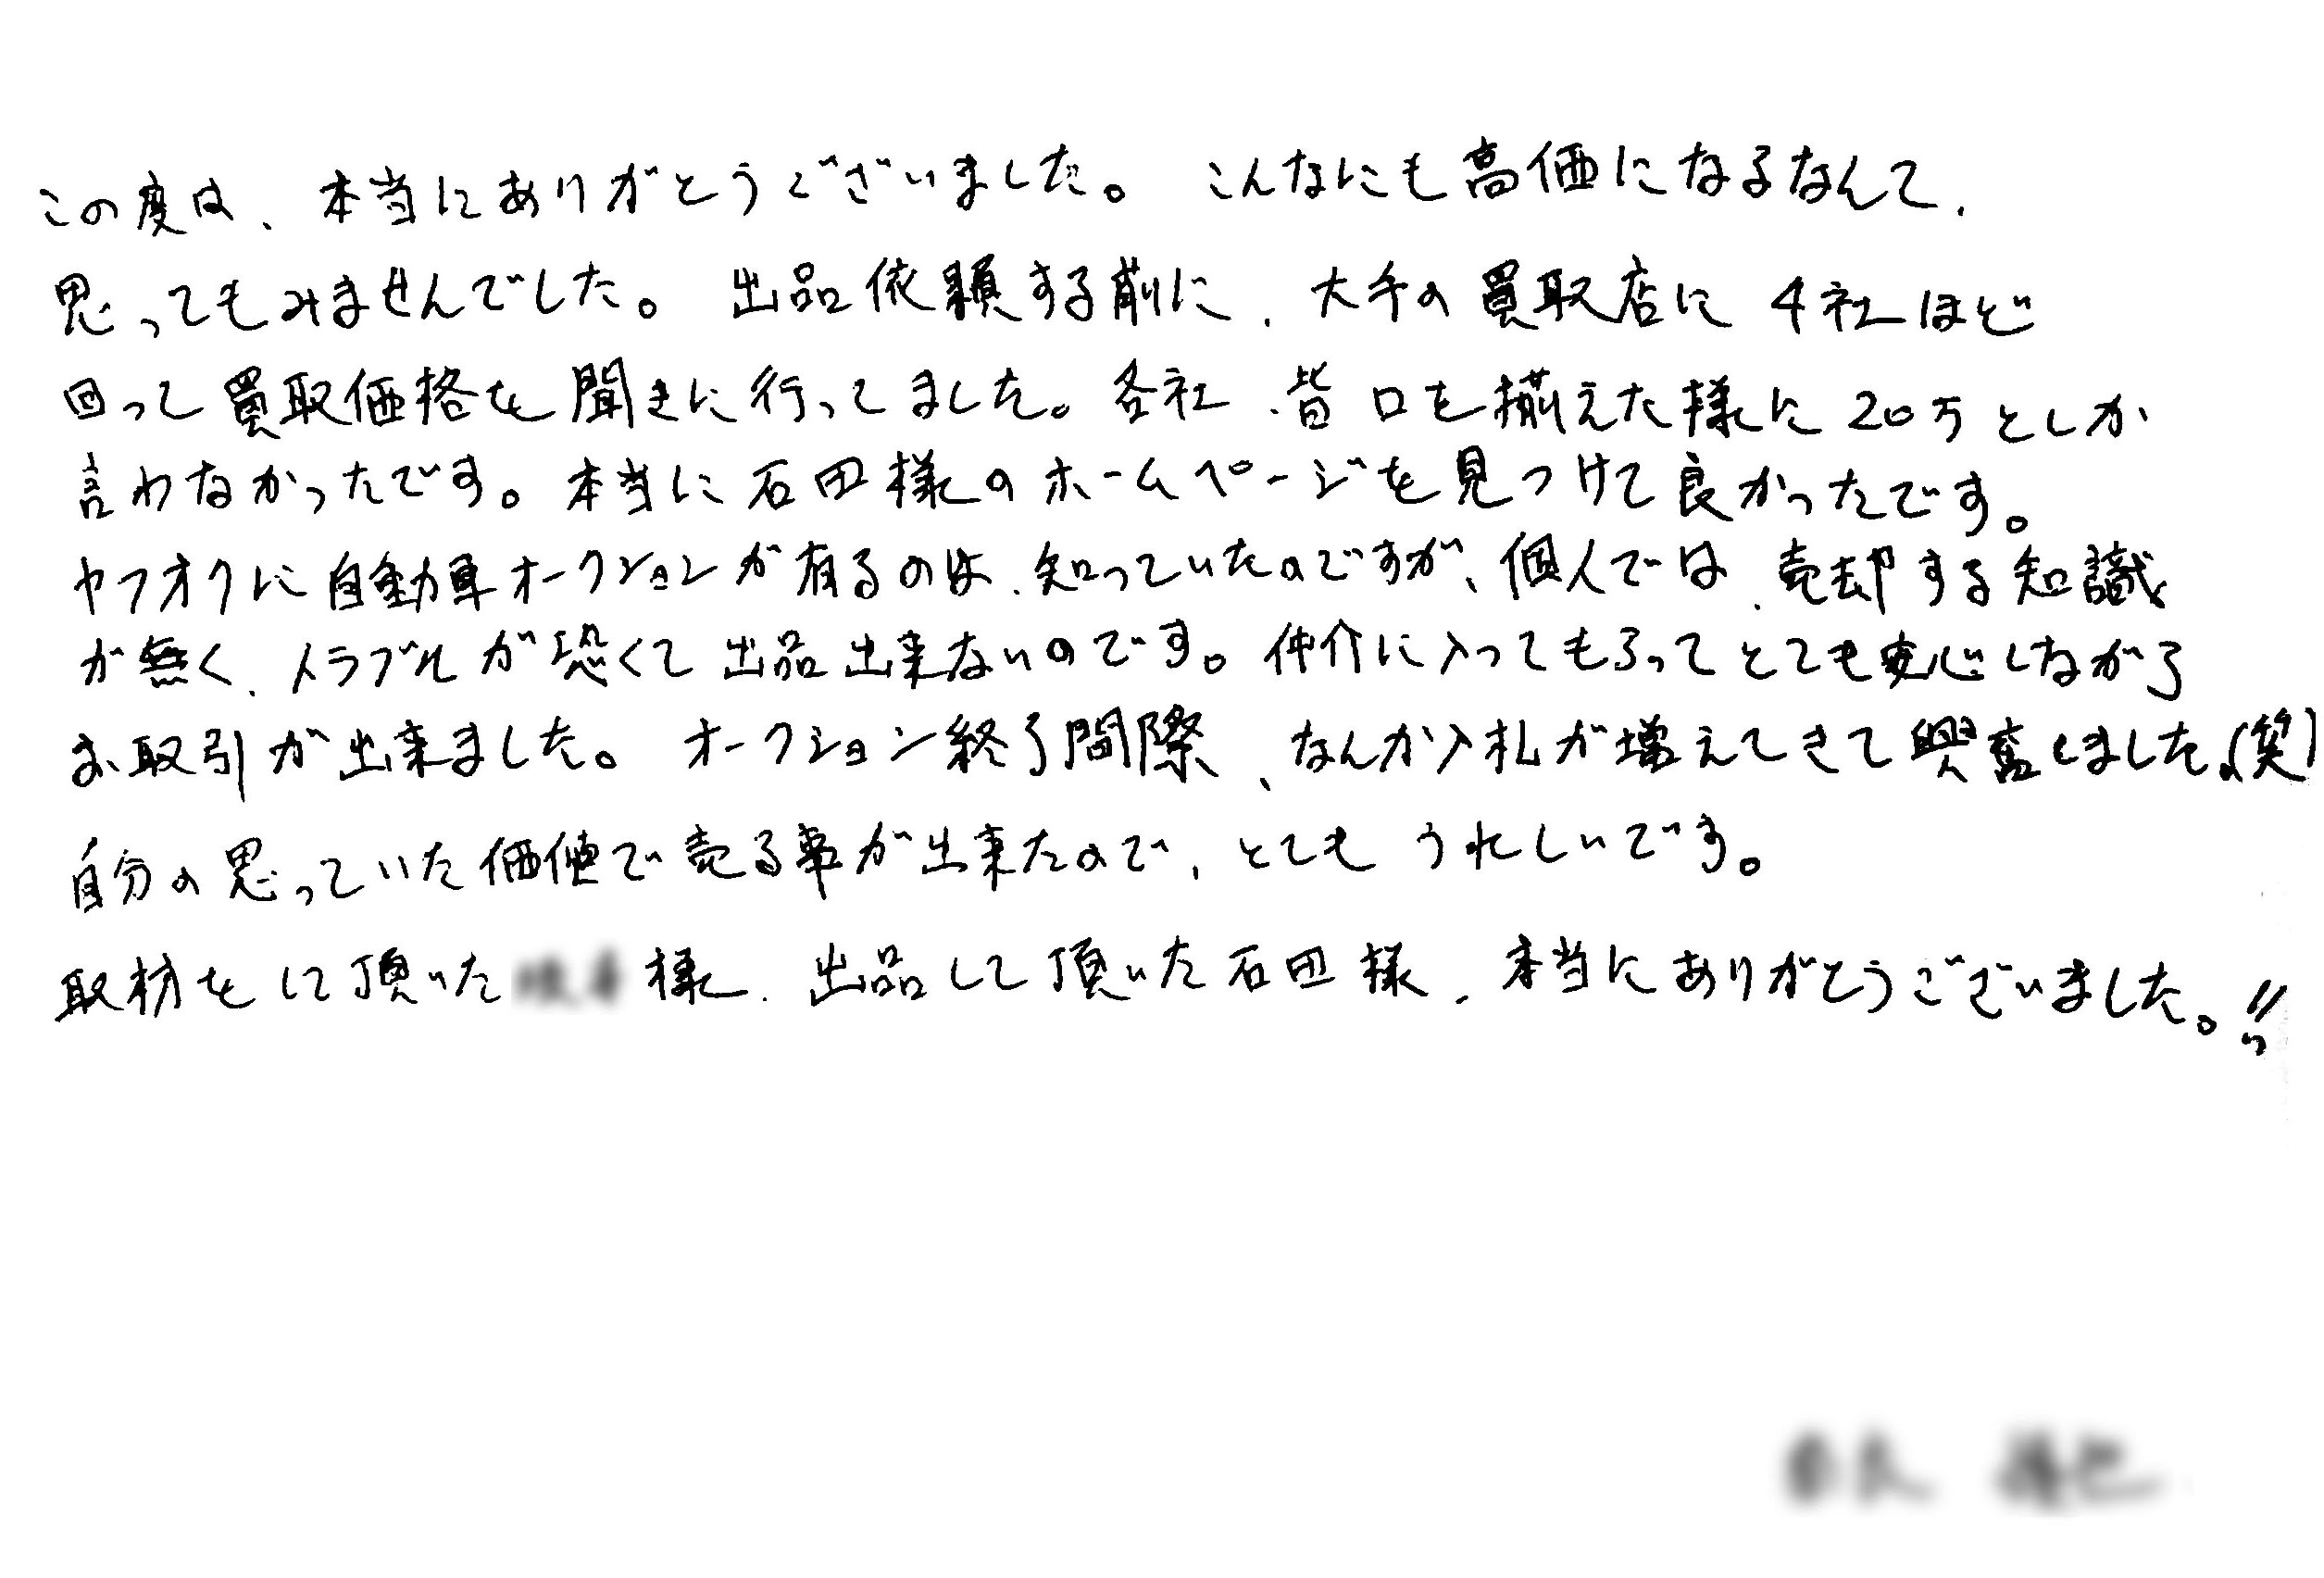 この度は、本当にありがとうございました。 こんなにも高価になるなんて、
思ってもみませんでした。 出品依頼する前に、大手の買取店に 4社ほど
回って買取価格を聞きに行ってました。各社、皆口を揃えた様に 20万としか
言わなかったです。本当に石田様のホームページを見つけて良かったです。
ヤフオクに自動車オークションが有るのは、知っていたのですが、個人では、売却する知識
が無く、トラブルが恐くて出品出来ないのです。仲介に入ってもらってとても安心しながら
お取引が出来ました。 オークション終了間際、なんか入札が増えてきて興奮しました。(笑)
自分の思っていた価値で売る事が出来たので、とてもうれしいです。
取材をして頂いた 様、出品して頂いた石田様、本当にありがとうございました。!!